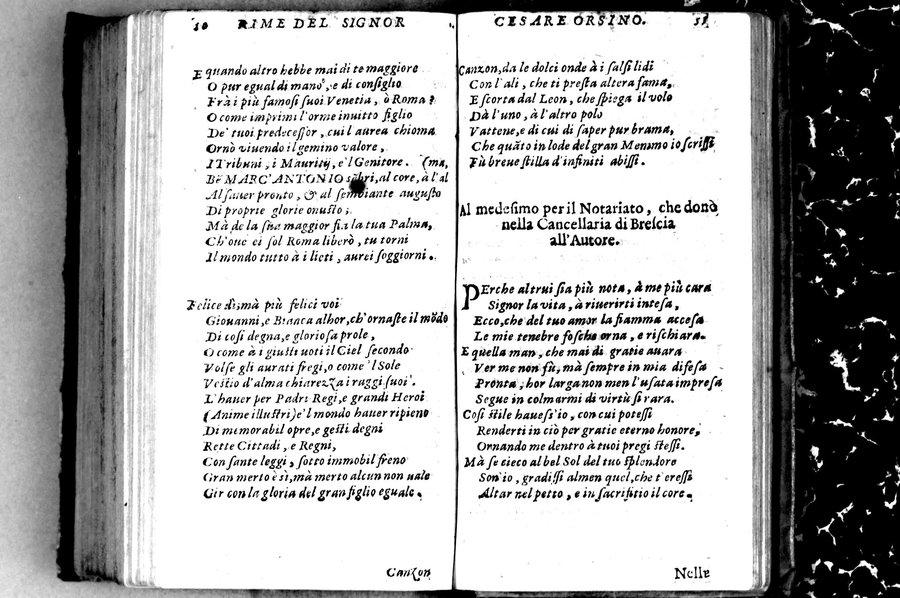 50 RIME DEL SIGNOR
E quando altro hebbe mai di te maggiore
O pur egual di mano, e di consiglio
Frà i più famosi suoi Venetia, ò Roma?
O come imprimi l'orme inuitto figlio
De' tuoi predecessor, cui l'aurea chioma
Ornò viuendo il gemino valore,
I Tribuni, i Mauritij, e'l Genitore. (ma,
Bẽ MARC'ANTONIO sẽbri, al core, à l'al
Al sauer pronto, & al sembiante augusto
Di proprie glorie onusto;
Mà de la sua maggior fia la tua Palma,
Ch'oue ei sol Roma liberò, tu torni
Il mondo tutto à i lieti, aurei soggiorni.
Felice sì, mà più felici voi
Giouanni, e Bianca alhor, ch'ornaste il mõdo
Di così degna, e gloriosa prole,
O come à i giusti uoti il Ciel secondo
Volse gli aurati fregi, o come 'l Sole
Vestìo d'alma chiarezza i raggi suoi.
L'hauer per Padri Regi, e grandi Heroi
(Anime illustri) e'l mondo hauer ripieno
Di memorabil opre, e gesti degni
Rette Cittadi, e Regni,
Con sante leggi, sotto immobil freno
Gran merto è sì, mà merto alcun non uale
Gir con la gloria del gran figlio eguale.
Canzon
CESARE ORSINO. 51
Canzon, da le dolci onde à i salsi lidi
Con l'ali, che ti presta altera fama,
E scorta dal Leon, che spiega il volo
Dà l'uno, à l'altro polo
Vattene, e di cui di saper pur brama,
Che quãto in lode del gran Memmo io scrissi
Fù breue stilla d'infiniti abissi.
Al medesimo per il Notariato, che donò
nella Cancellaria di Brescia
all'Autore.
PErche altrui sia più nota, à me più cara
Signor la vita, à riuerirti intesa,
Ecco, che del tuo amor la fiamma accesa
Le mie tenebre fosche orna, e rischiara.
E quella man, che mai di gratie auara
Ver me non fù, mà sempre in mia difesa
Pronta; hor larga non men l'usata impresa
Segue in colmarmi di virtù sì rara.
Così stile hauess'io, con cui potessi
Renderti in ciò per gratie eterno honore,
Ornando me dentro à tuoi pregi stessi.
Mà se cieco al bel Sol del tuo splendore
Son'io, gradissi almen quel, che t'eressi
Altar nel petto, e in sacrifitio il core.
Nelle